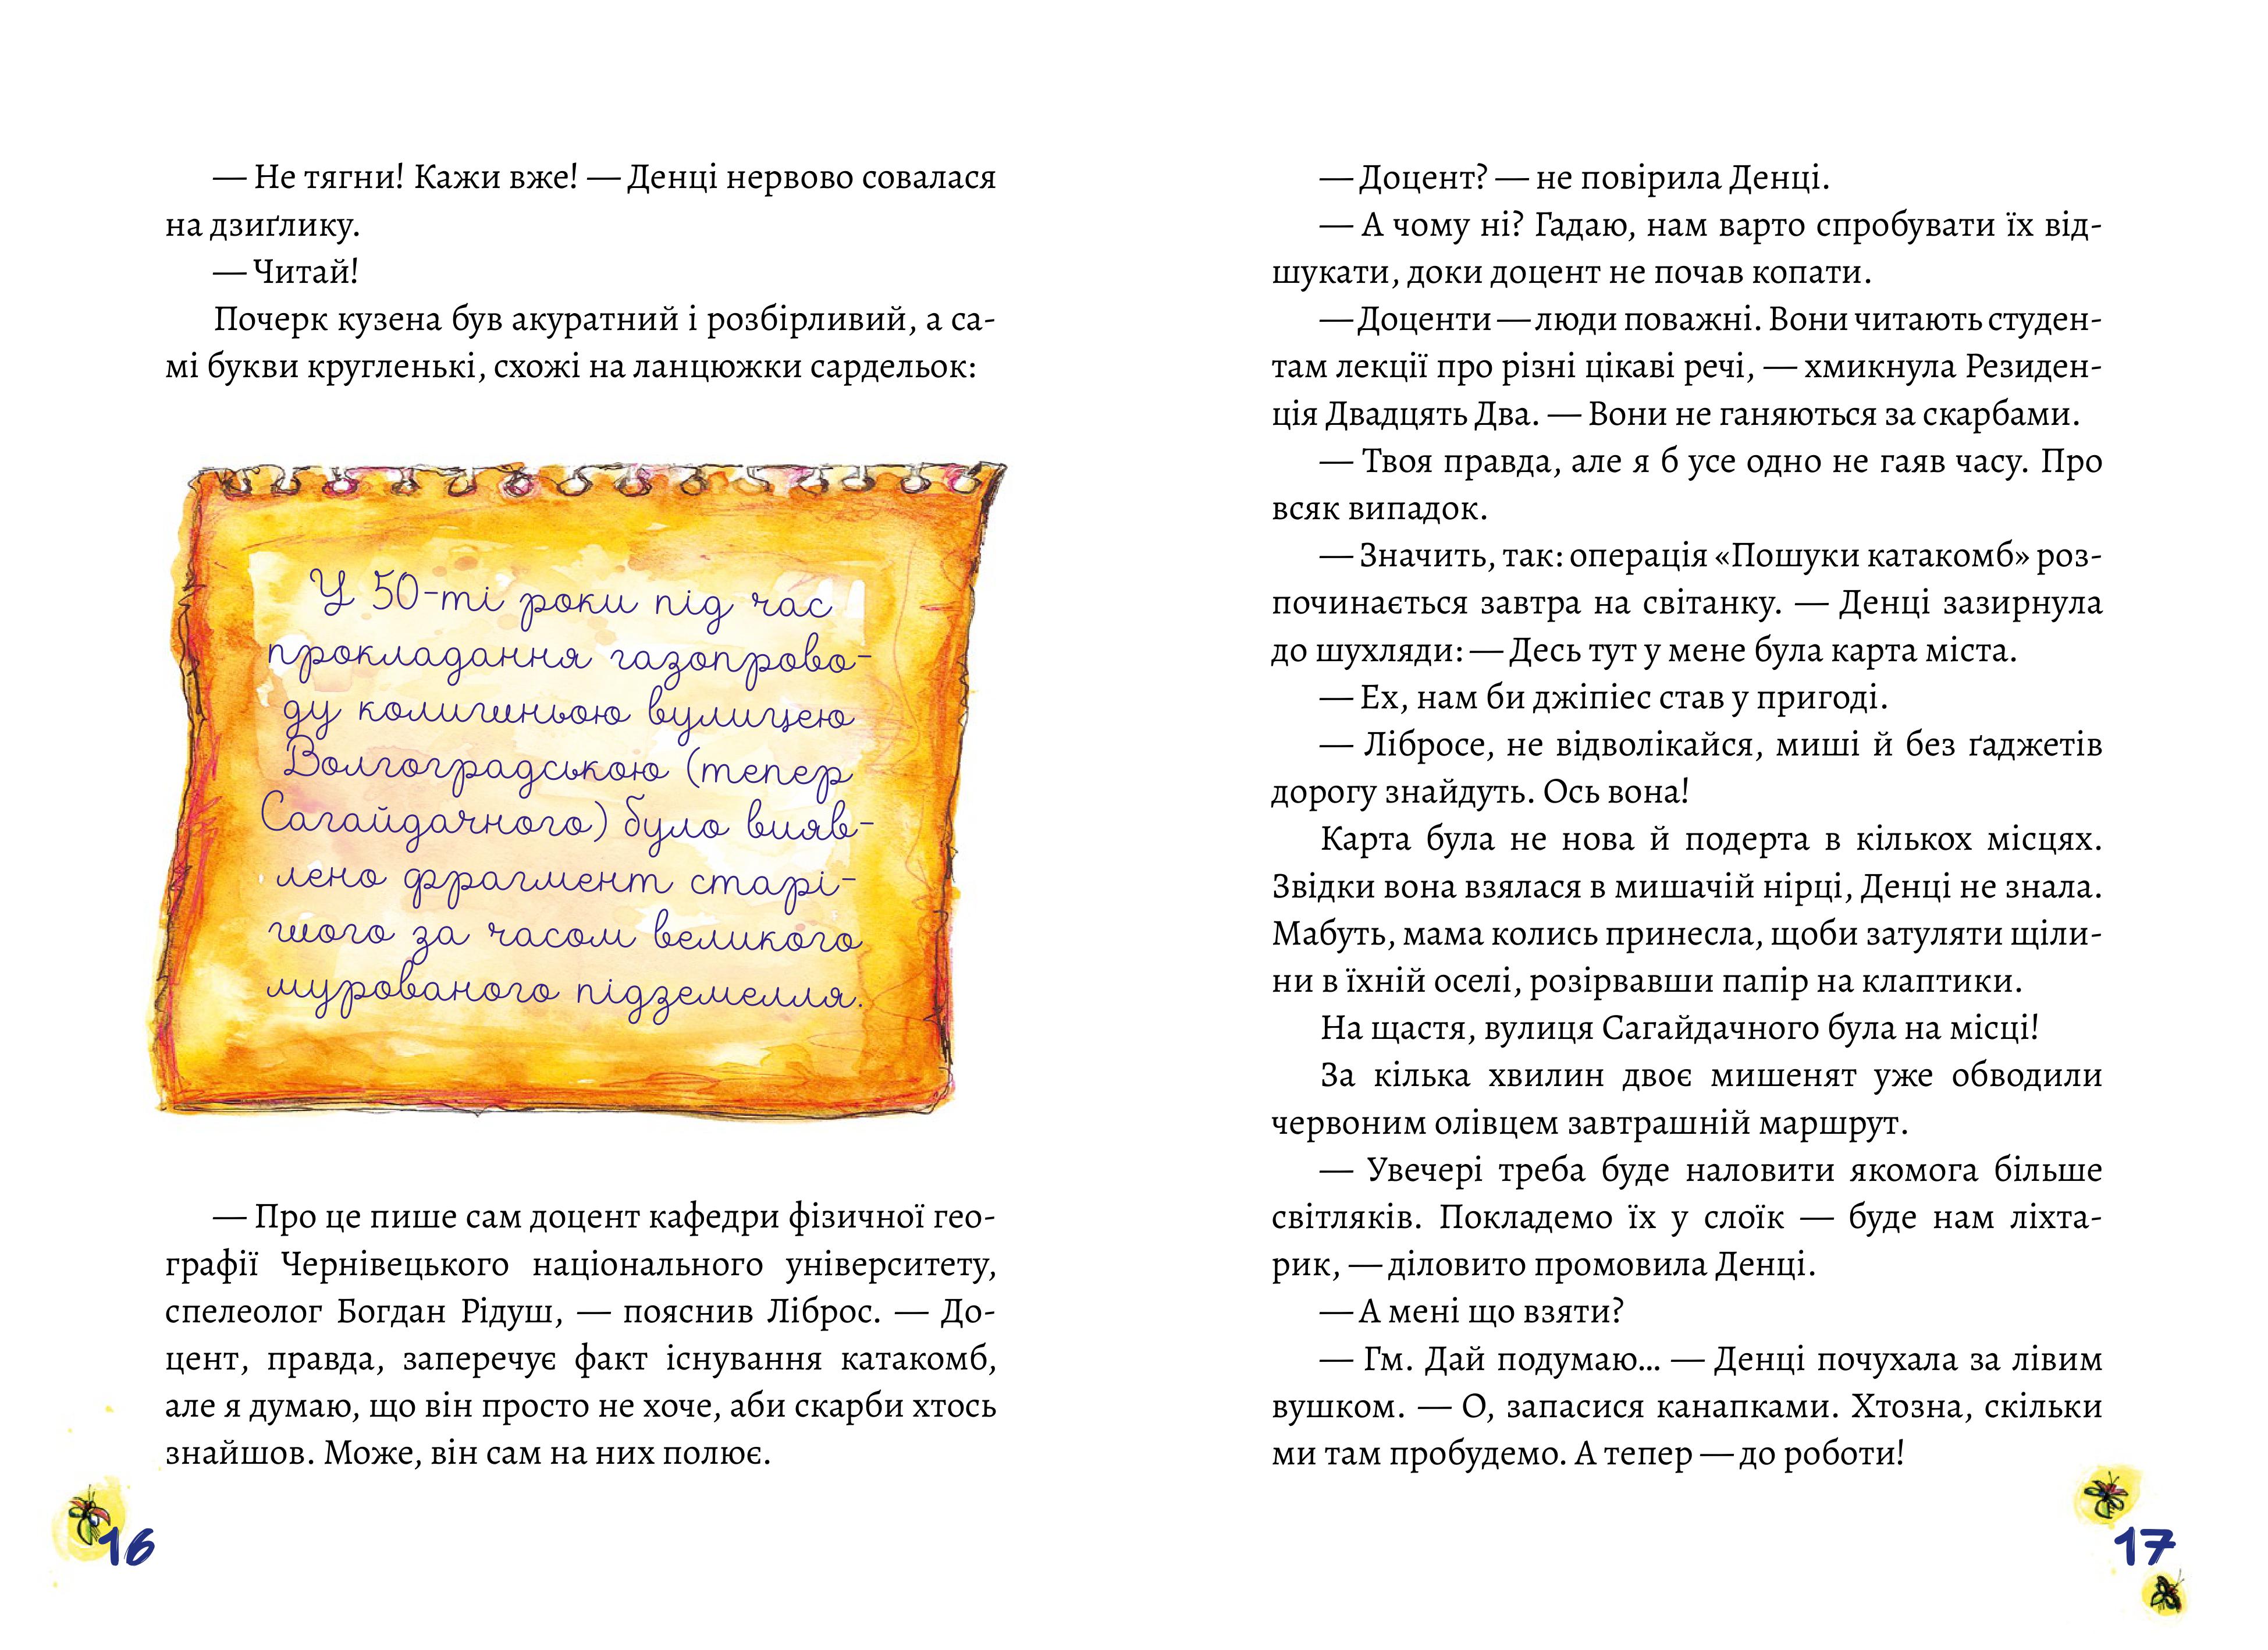 — Не тягни! Кажи вже! — Денці нервово совалася
на дзиґлику.
— Читай!
Почерк кузена був акуратний і розбірливий, а са-
мі букви кругленькі, схожі на ланцюжки сардельок:
У 50-ті роки під час
прокладання газопрово-
ду колишньою вулицею
Волгоградською (тепер
Сагайдачного) було вияв-
лено фрагмент старі-
шого за часом великого
мурованого підземелля.
— Про це пише сам доцент кафедри фізичної гео-
графії Чернівецького національного університету,
спелеолог Богдан Рідуш, — пояснив Ліброс. — До-
цент, правда, заперечує факт існування катакомб,
але я думаю, що він просто не хоче, аби скарби хтось
знайшов. Може, він сам на них полює.
16
— Доцент? — не повірила Денці.
— А чому ні? Гадаю, нам варто спробувати їх від-
шукати, доки доцент не почав копати.
— Доценти — люди поважні. Вони читають студен-
там лекції про різні цікаві речі, — хмикнула Резиден-
ція Двадцять Два. — Вони не ганяються за скарбами.
— Твоя правда, але я б усе одно не гаяв часу. Про
всяк випадок.
— Значить, так: операція «Пошуки катакомб» роз-
починається завтра на світанку. — Денці зазирнула
до шухляди: — Десь тут у мене була карта міста.
— Ех, нам би джіпіес став у пригоді.
— Лібросе, не відволікайся, миші й без ґаджетів
дорогу знайдуть. Ось вона!
Карта була не нова й подерта в кількох місцях.
Звідки вона взялася в мишачій нірці, Денці не знала.
Мабуть, мама колись принесла, щоби затуляти щіли-
ни в їхній оселі, розірвавши папір на клаптики.
На щастя, вулиця Сагайдачного була на місці!
За кілька хвилин двоє мишенят уже обводили
червоним олівцем завтрашній маршрут.
— Увечері треба буде наловити якомога більше
світляків. Покладемо їх у слоїк — буде нам ліхта-
рик, — діловито промовила Денці.
— А мені що взяти?
— Гм. Дай подумаю... — Денці почухала за лівим
вушком. — О, запасися канапками. Хтозна, скільки
ми там пробудемо. А тепер — до роботи!
17